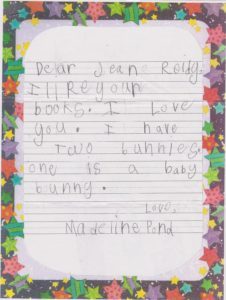 Dear Jeane Reidy.
I ll Re your
books. I Love
you. I have
Two bunnies.
one is a baby
bunny.
Love,
Madeline Pond